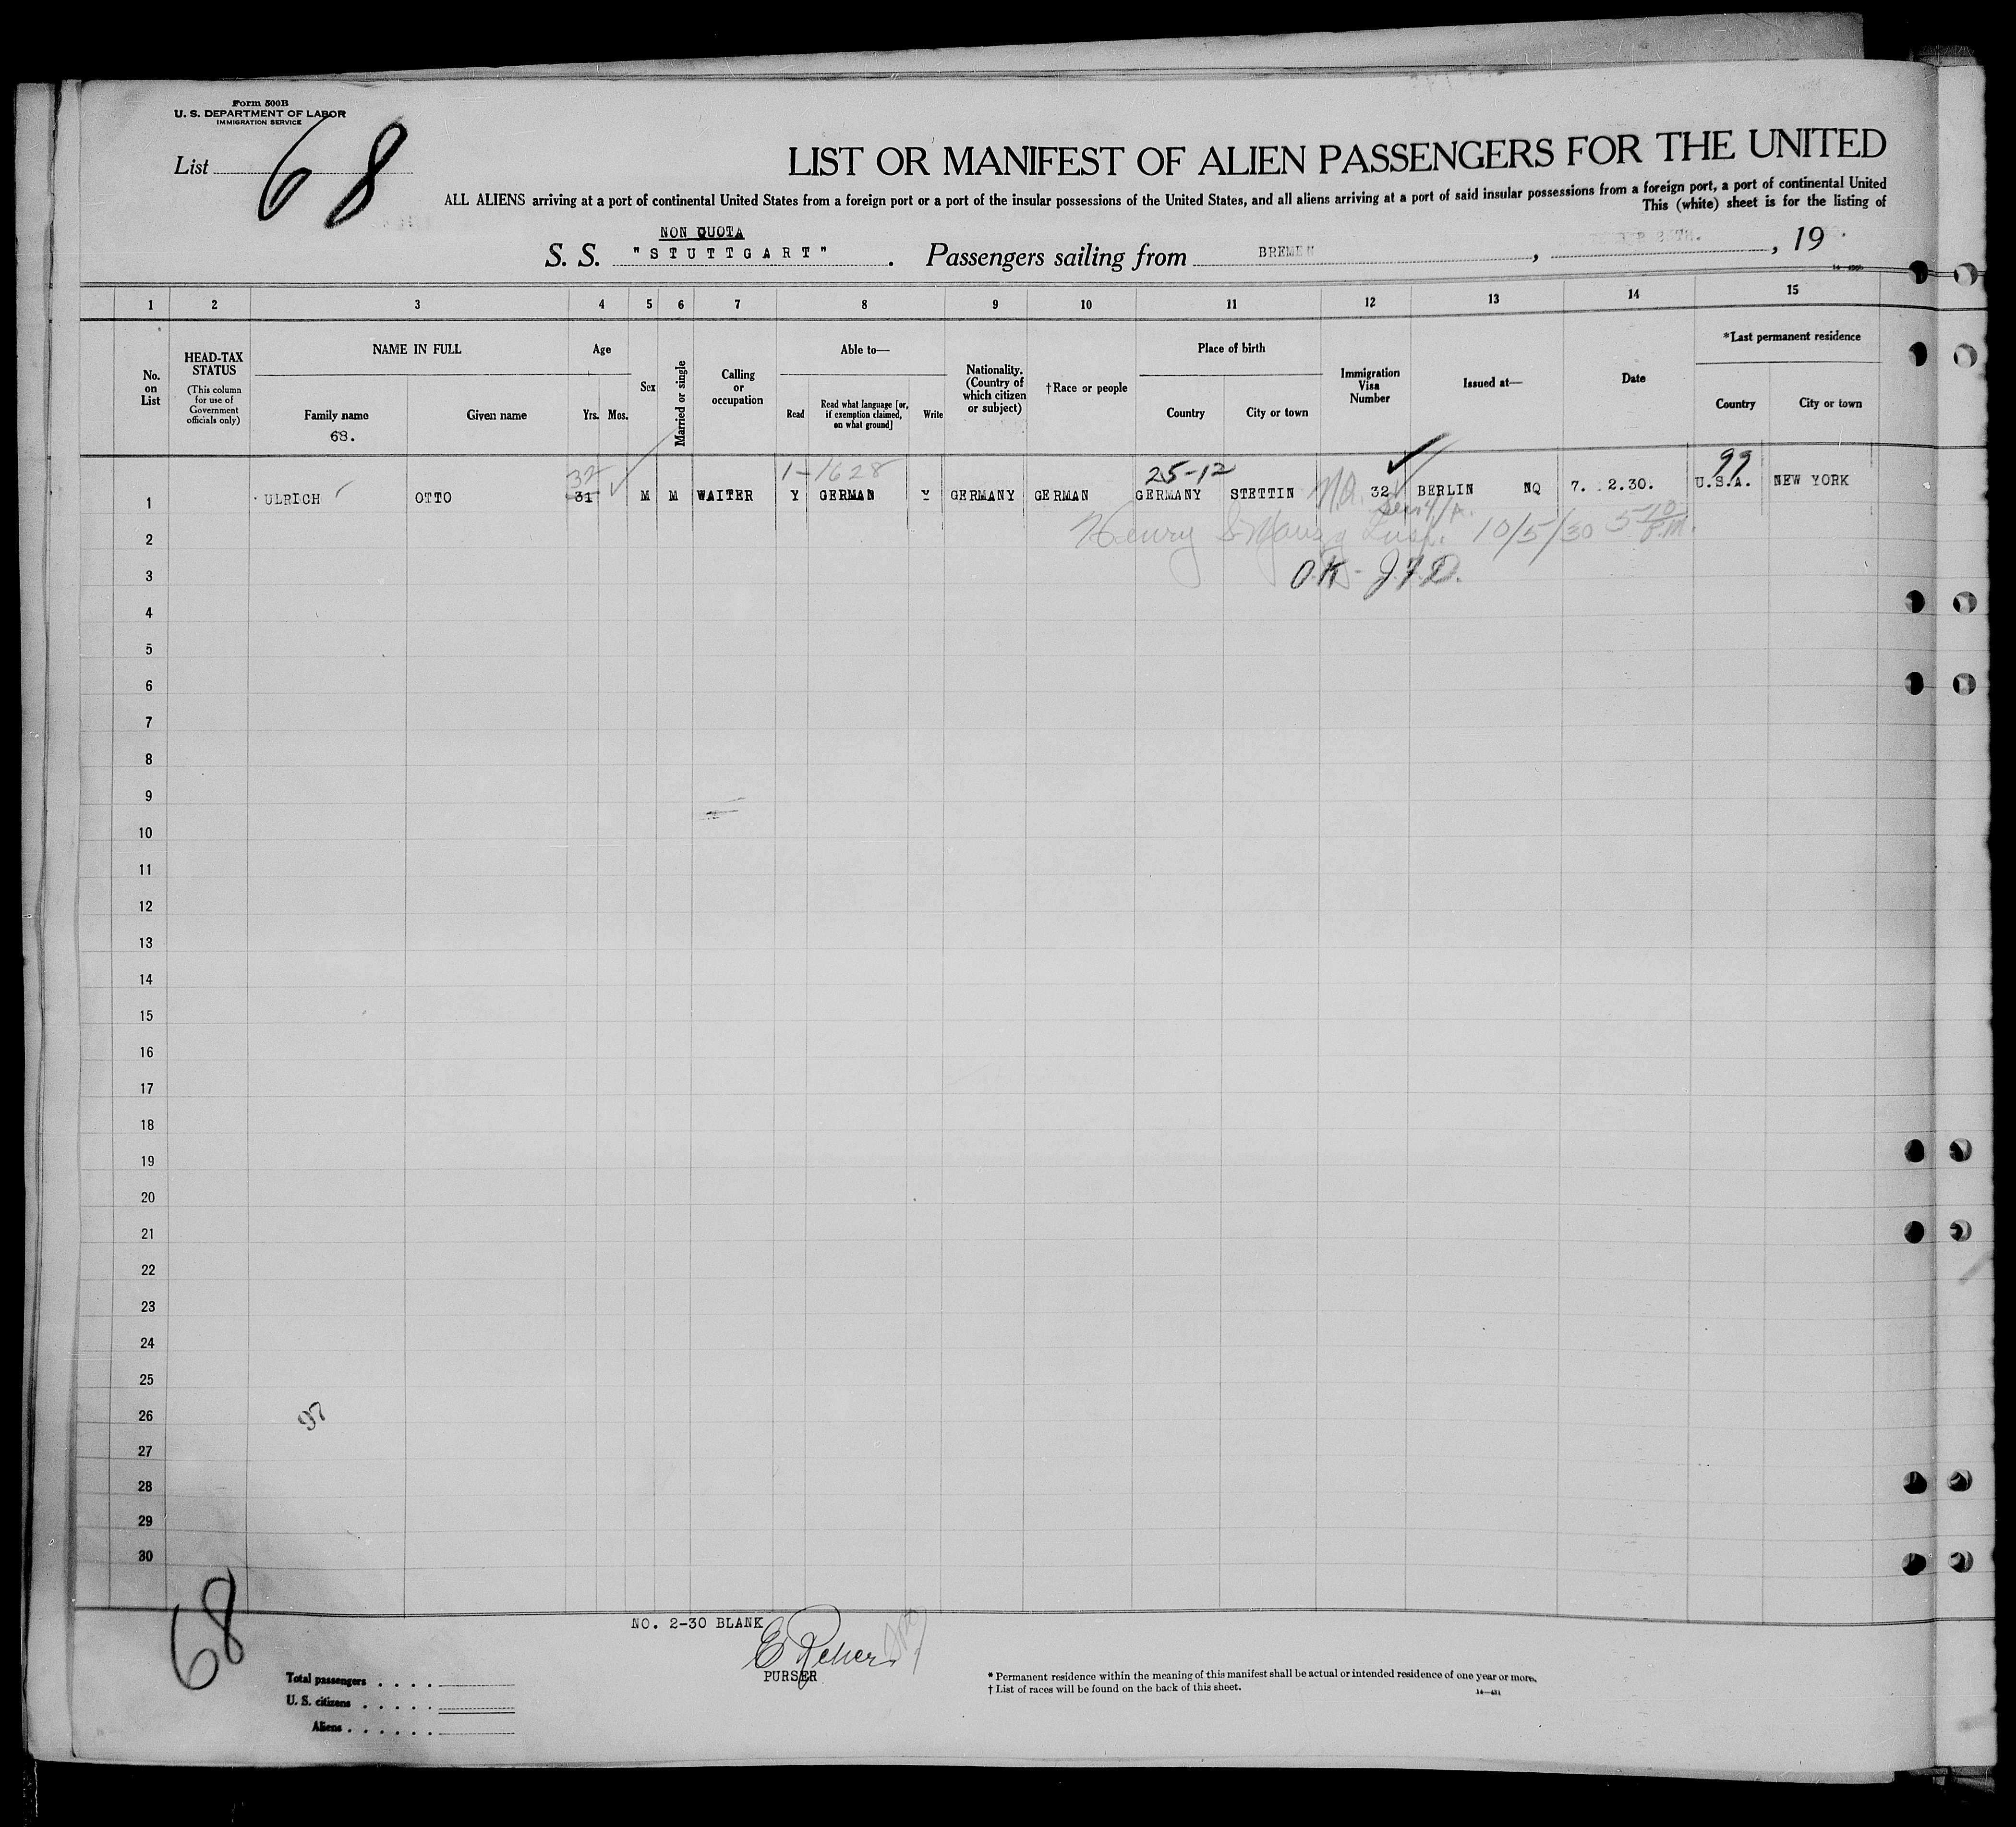 Form 500B
U. S. DEPARTMENT OF LABOR
IMMIGRATION SERVICE
List 68
LIST OR MANIFEST OF ALIEN PASSENGERS FOR THE UNITED
ALL ALIENS arriving at a port of continental United States from a foreign port or a port of the insular possessions of the United States, and all aliens arriving at a port of said insular possessions from a foreign port, a port of continental United
This (white) sheet is for the listing of
NON QUOTA
S. S. "STUTTGART" . Passengers sailing from BREMEN , , 19
1 2 3 4 5 6 7 8 9 10 11 12 13 14 15
No. on List
HEAD-TAX STATUS (This column for use of Government officials only)
NAME IN FULL
Family name Given name
68.
Age
Yrs. Mos.
Sex
Married or single
Calling or occupation
Able to—
Read
Read what language [or, if exemption claimed, on what ground]
Write
Nationality. (Country of which citizen or subject)
†Race or people
Place of birth
Country City or town
Immigration Visa Number
Issued at—
Date
*Last permanent residence
Country City or town
32 1-1628 25-12 99
1 ULRICH OTTO 31 M M WAITER Y GERMAN Y GERMANY GERMAN GERMANY STETTIN 32 BERLIN NQ 7. 2.30. U.S.A. NEW YORK
2 Henry 10/5/30 5 10 P.M.
3 OK - J.F.D.
4
5
6
7
8
9
10
11
12
13
14
15
16
17
18
19
20
21
22
23
24
25
26 97
27
28
29
30
68
NO. 2-30 BLANK
PURSER
Total passengers . . . .
U. S. citizens . . . . .
Aliens . . . . . .
* Permanent residence within the meaning of this manifest shall be actual or intended residence of one year or more.
† List of races will be found on the back of this sheet.